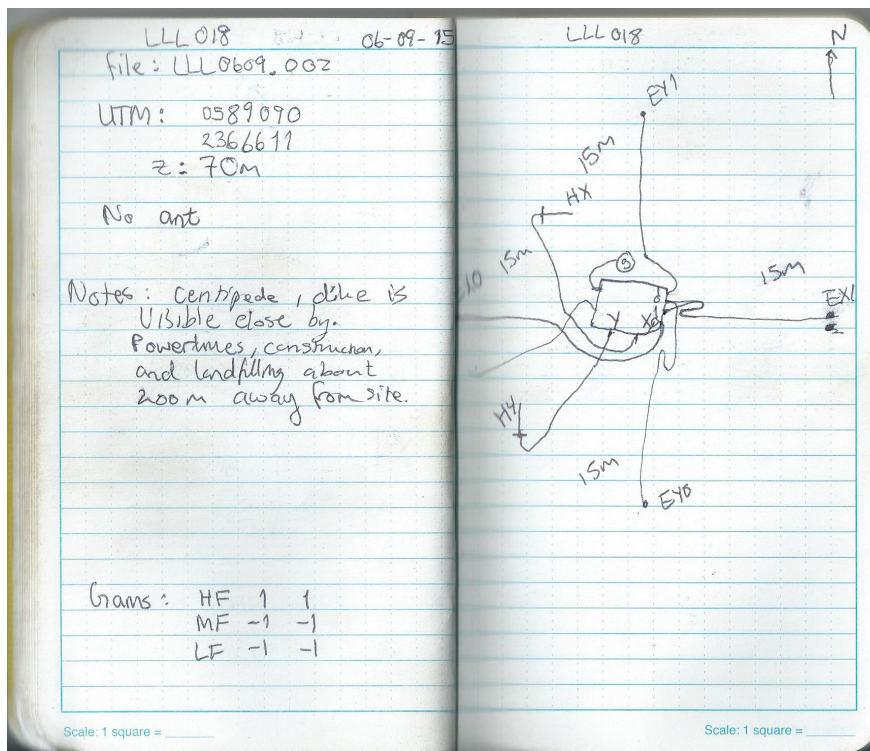 LLL018
06-09-15
file: LLL0609.002
UTM: 0589090
2366611
z: 70m
No ant
Notes: Centipede, dike is
visible close by.
Powerlines, construction,
and landfilling about
200m away from site.
Gains: HF 1 1
MF -1 -1
LF -1 -1
Scale: 1 square =
LLL018
N
EY1
15m
HX
15m
15m
EX1
Y X
HY
15m
EY0
Scale: 1 square =